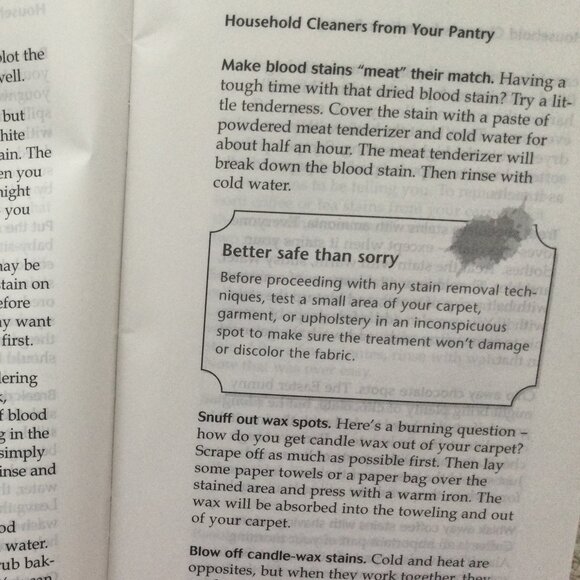 plot the
well.
but
white
ain. The
en you
night
you
may be
stain on
efore
ny want
first.
dering
k,
f blood
g in the
simply
inse and
od
water.
rub bak-
can
Household Cleaners from Your Pantry
Make blood stains “meat” their match. Having a
tough time with that dried blood stain? Try a lit-
tle tenderness. Cover the stain with a paste of
powdered meat tenderizer and cold water for
about half an hour. The meat tenderizer will
break down the blood stain. Then rinse with
cold water.
Better safe than sorry
Before proceeding with any stain removal tech-
niques, test a small area of your carpet,
garment, or upholstery in an inconspicuous
spot to make sure the treatment won’t damage
or discolor the fabric.
Snuff out wax spots. Here’s a burning question –
how do you get candle wax out of your carpet?
Scrape off as much as possible first. Then lay
some paper towels or a paper bag over the
stained area and press with a warm iron. The
wax will be absorbed into the toweling and out
of your carpet.
Blow off candle-wax stains. Cold and heat are
opposites, but when they work together, they